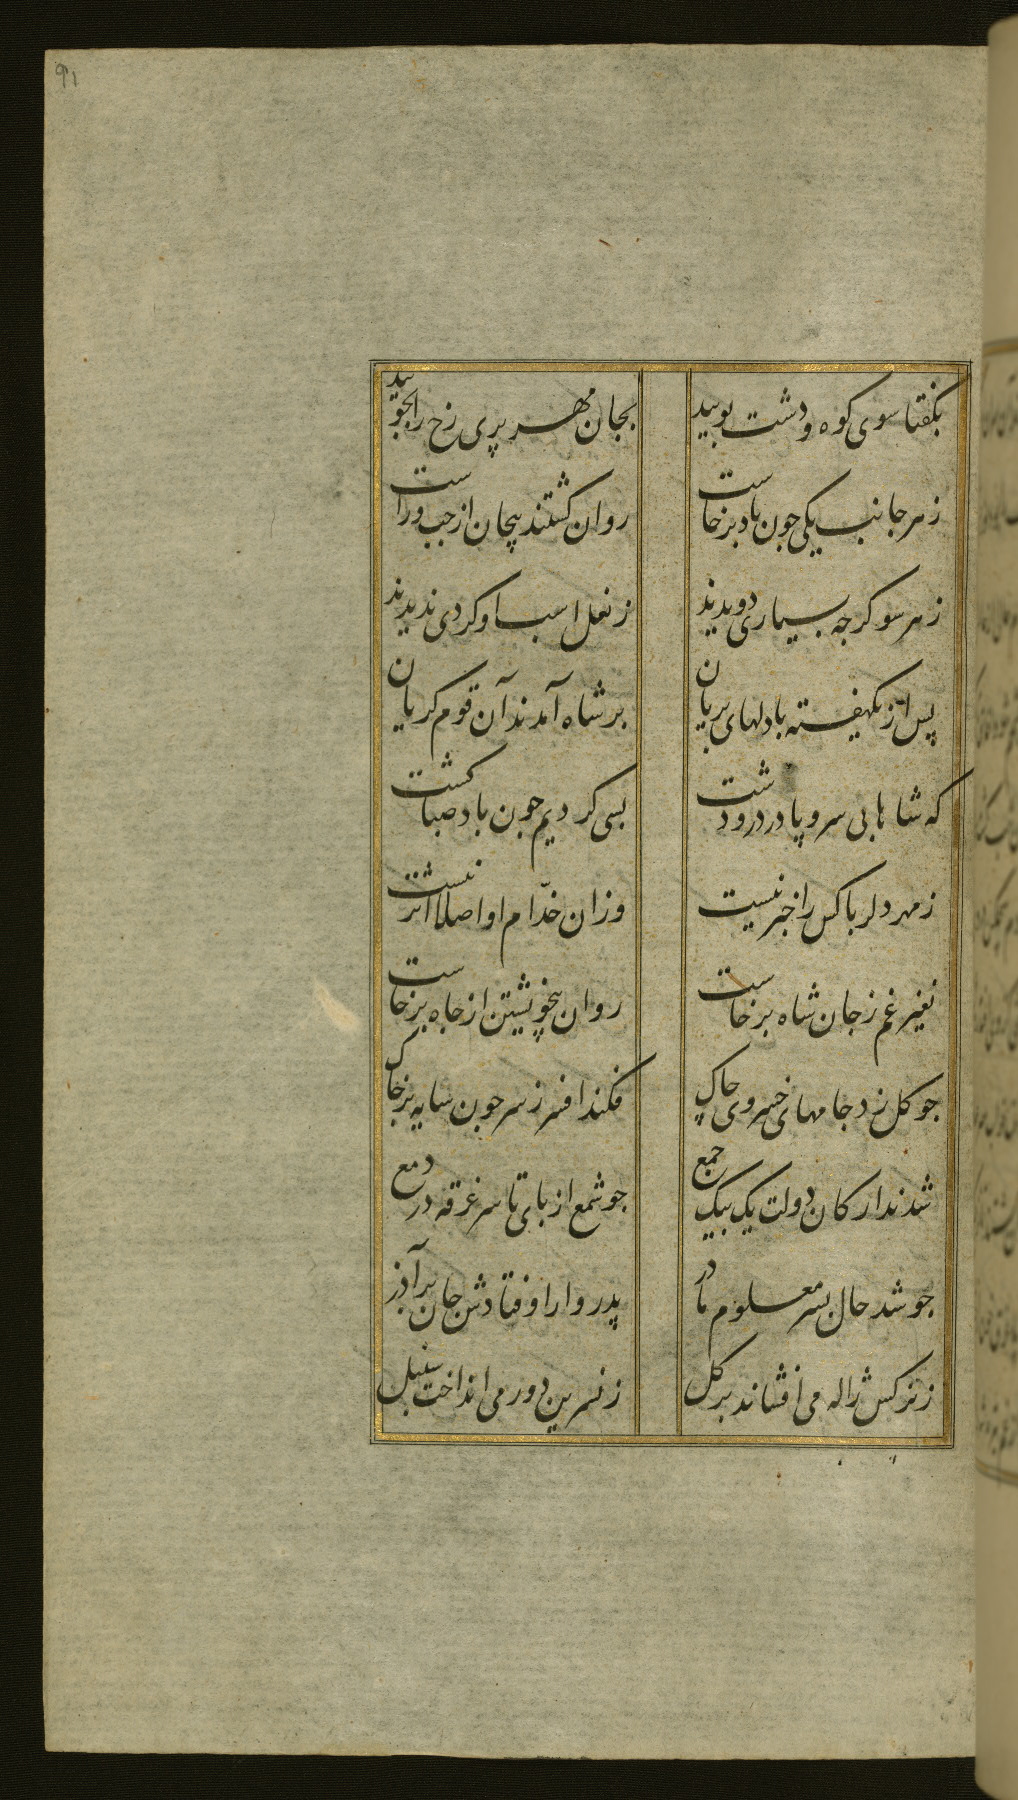 ٩١
بگفتا سوی کوه و دشت پویید
بجان مهر پری رخ را بجویید
زهر جانب یکی چون باد برخاست
روان گشتند پیچان از چپ و راست
زهر سو گرچه بسیاری دویدند
ز نعل اسب او گردی ندیدند
پس از یکهفته با دلهای بریان
بر شاه آمدند آن قوم گریان
که شاها بی سر و پا در در و دشت
بسی کردیم چون باد صبا گشت
ز مهر دلربا کس را خبر نیست
وزان خدّام او اصلا اثر نیست
نفیر غم ز جان شاه برخاست
روان بیخویشتن از جاه برخاست
چو گل زد جامهای خسروی چاک
فکند افسر ز سر چون سایه بر خاک
شدند ارکان دولت یک بیک جمع
چو شمع از پای تا سر غرقه در دمع
چو شد حال پسر معلوم مادر
پدر وار اوفتادش جان بر آذر
ز نرگس ژاله می افشاند بر گل
ز نسرین دور می انداخت سنبل